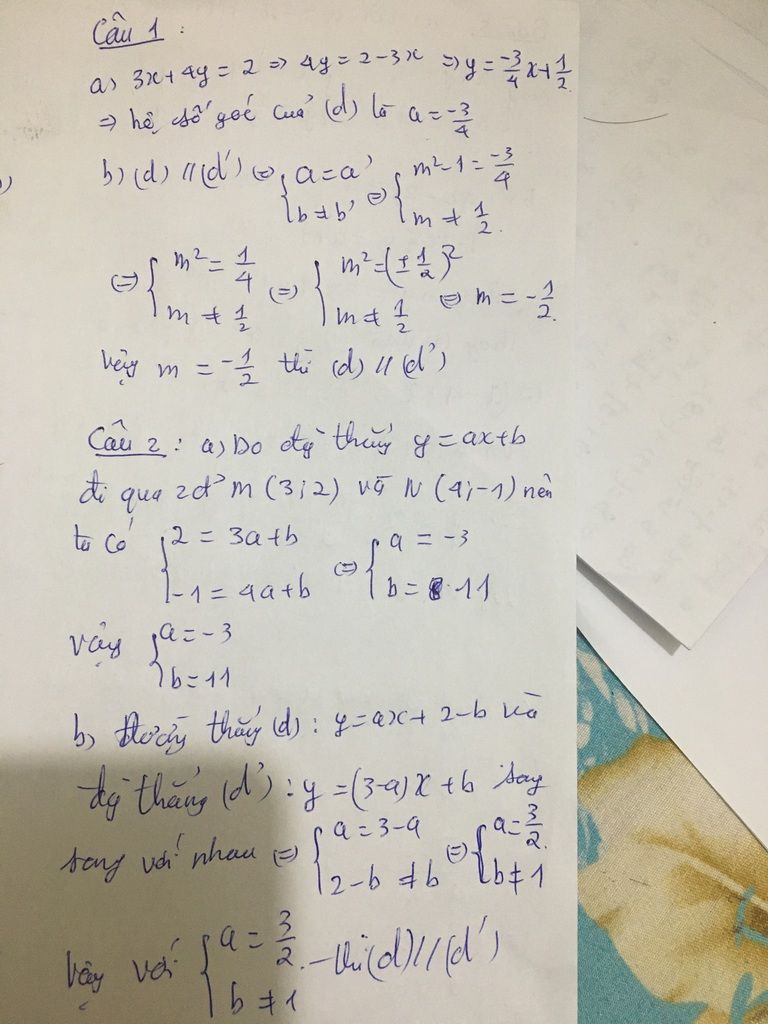 Câu 1 :
a) 3x+4y = 2 => 4y = 2-3x => y = -3/4 x + 1/2.
=> hệ số góc của (d) là a = -3/4
b) (d) // (d') <=> { a = a' ; b ≠ b' <=> { m²-1 = -3/4 ; m ≠ 1/2.
<=> { m² = 1/4 ; m ≠ 1/2 <=> { m² = (± 1/2)² ; m ≠ 1/2 <=> m = -1/2.
vậy m = -1/2 thì (d) // (d')
Câu 2 : a) Do đg thẳng y = ax+b
đi qua 2đ' M (3;2) và N (4;-1) nên
ta có { 2 = 3a+b ; -1 = 4a+b <=> { a = -3 ; b = 11
vậy { a = -3 ; b = 11
b) Đường thẳng (d) : y = ax+ 2-b và
đg thẳng (d') : y = (3-a)x + b song
song với nhau <=> { a = 3-a ; 2-b ≠ b <=> { a = 3/2. ; b ≠ 1
vậy với { a = 3/2. ; b ≠ 1 - thì (d) // (d')